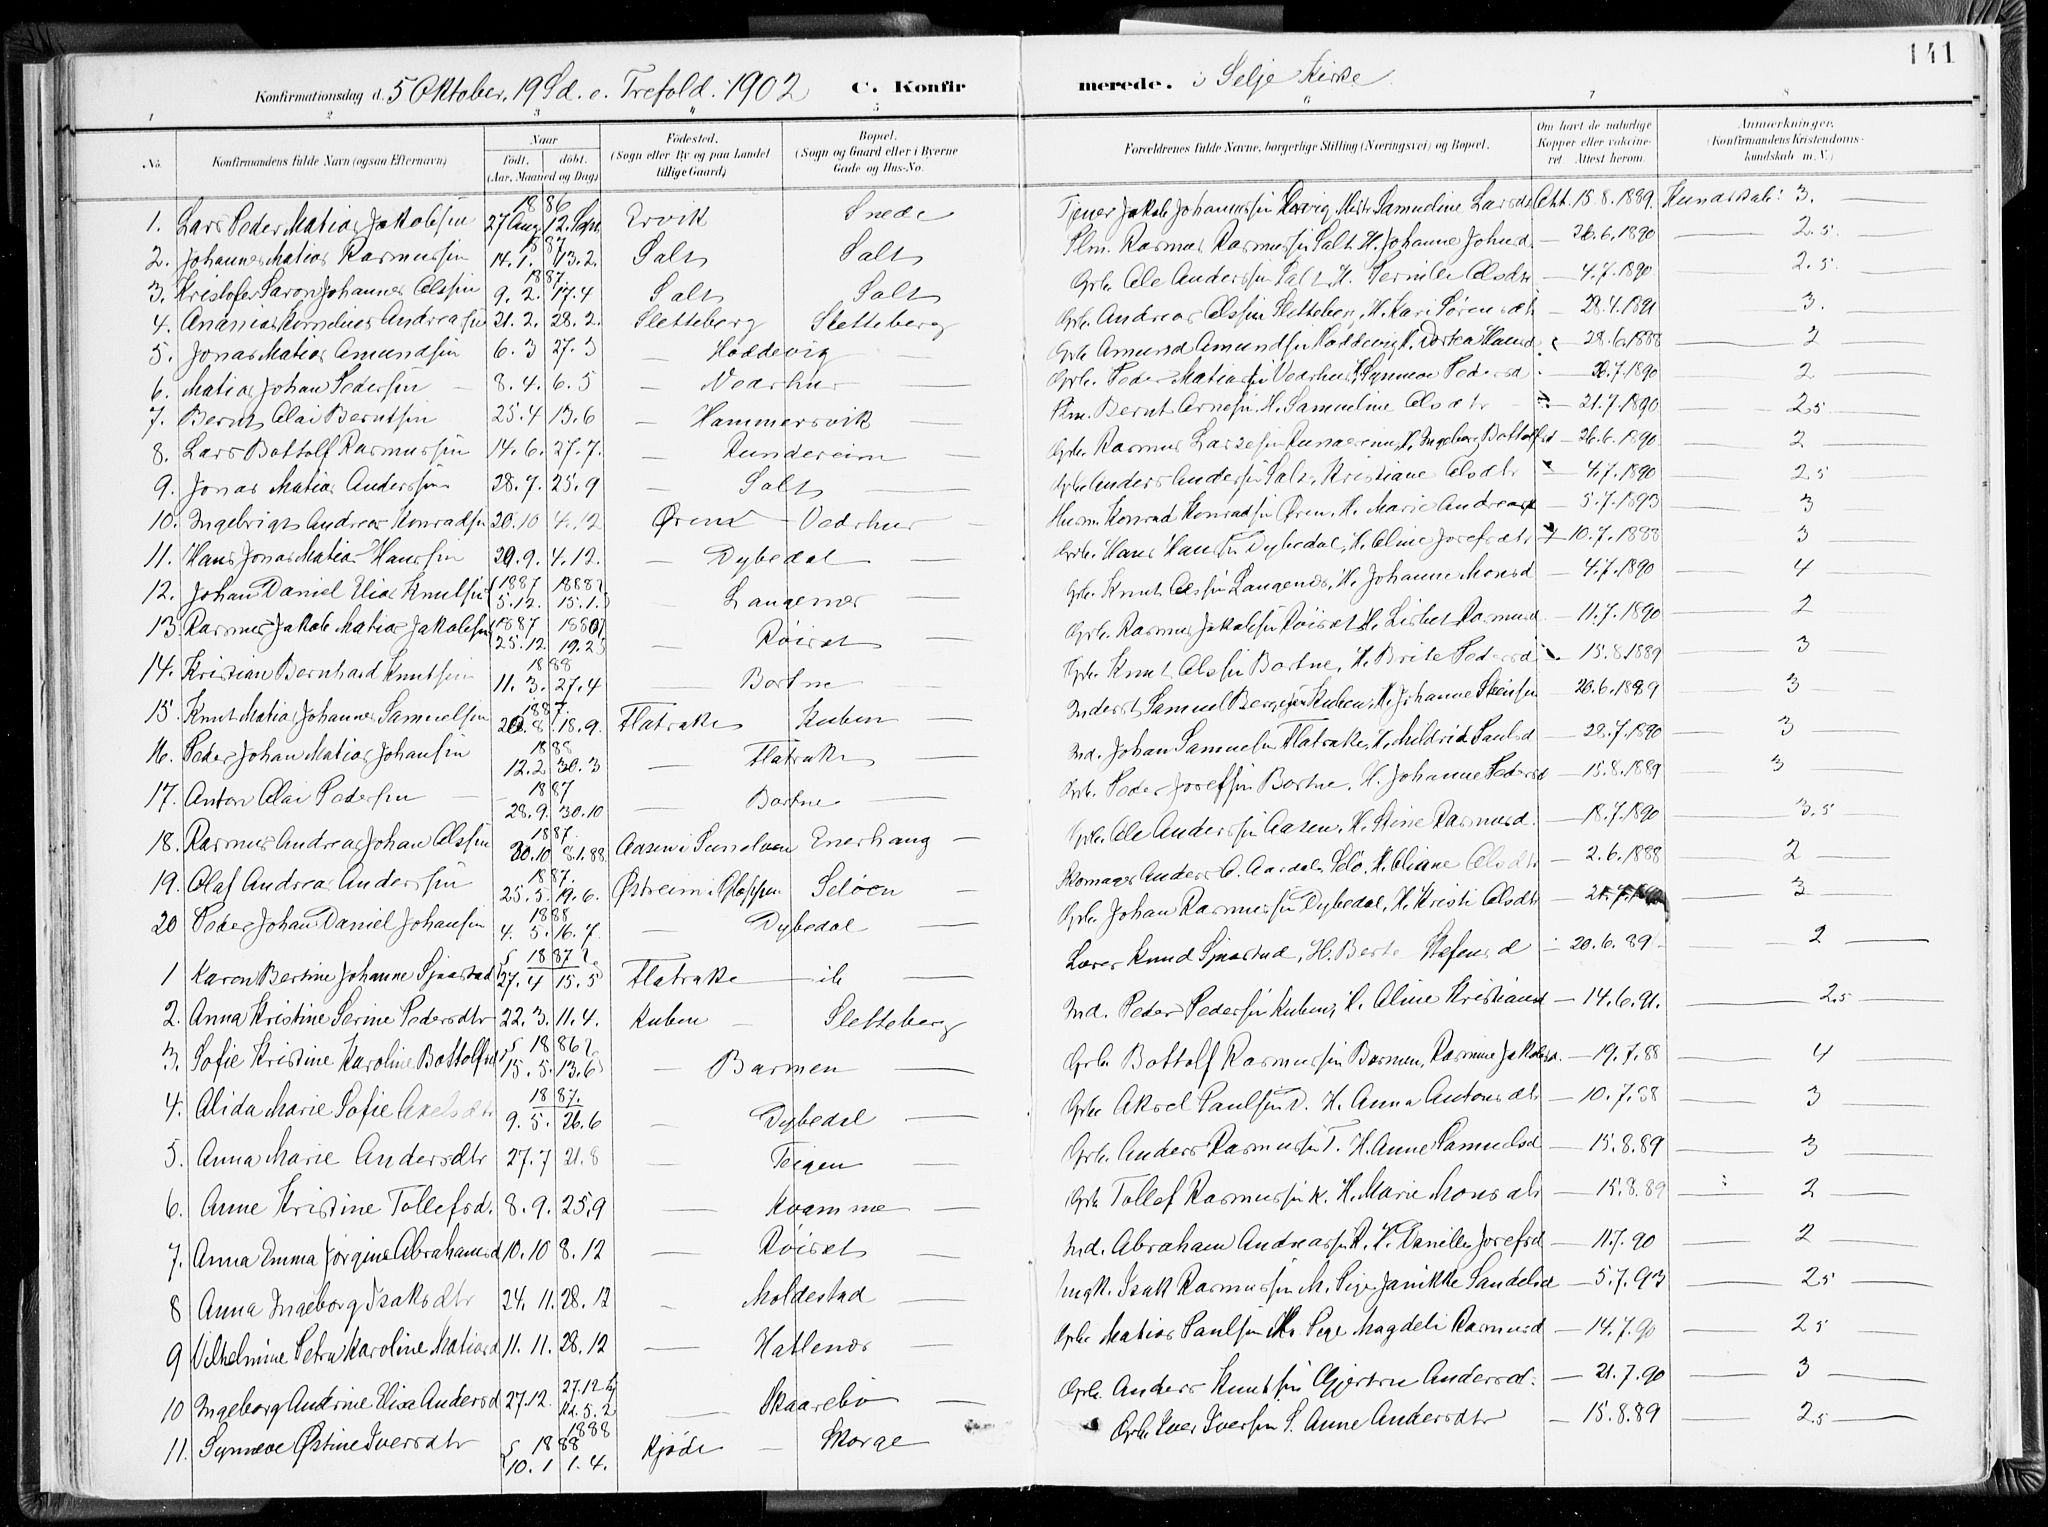 141
Konfirmationsdag d. 5 Oktober, 19 Sd. e. Trefold. 1902 C. Konfirmerede. i Selje Kirke
1 2 3 4 5 6 7 8
No. Konfirmandens fulde Navn (ogsaa Efternavn) Naar født, døbt. (Aar, Maaned og Dag) Fødested. (Sogn eller By og paa Landet tillige Gaard) Bopæl. (Sogn og Gaard eller i Byerne Gade og Hus-No. Forældrenes fulde Navne, borgerlige Stilling (Næringsvei) og Bopæl. Om havt de naturlige Kopper eller vakcineret Attest herom. Anmærkninger. (Konfirmandens Kristendomskundskab m. V.)
1. Lars Peder Matias Jakobsen 1886 27 Aug. 12. Sept. Ervik Snede Tjener Jakob Johannessen Ervig, Mødr. Samueline Larsdtr Att. 15.8.1889. Kundskab: 3.
2. Johannes Matias Rasmussen 1887 14.1. 13.2. Salt Salt Plm. Rasmus Rasmussen Salt, H. Johanne Johnsd. — 26.6.1890 — 2.5.
3. Kristofer Saron Johannes Olssen 1887 9.2. 17.4 Salt Salt Grbr. Ole Anderssen Salt, H. Pernille Olsdtr — 4.7.1890 — 2.5.
4. Ananias Kornelius Andreassen 21.2. 28.2. Sletteberg Sletteberg Grbr. Andreas Olssen Sletteberg, H. Kari Sørensdtr. — 28.4.1891 — 3.
5. Jonas Matias Amundsen 6.3 27.3 — Hoddevig Grbr. Amund Amundsen Hoddevig, H. Dortea Hansd. — 28.6.1888 — 2
6. Matias Johan Pedersen — 8.4. 6.5 — Vedrhus — Grbr. Peder Matiassen Vedrhus, H. Synneve Pedersd. — 20.7.1890 — 2
7. Bernt Olai Berntsen 25.4 13.6 — Hammersvik — Plm. Bernt Arnesen, H. Samueline Olsdtr — 21.7.1890 — 2.5
8. Lars Bottolf Rasmussen 14.6. 27.7. — Rundereim — Grbr. Rasmus Larsesen Rundereim, H. Ingeborg Bottolfsd — 26.6.1890 — 2
9. Jonas Matias Anderssen 28.7. 25.9 — Salt — Grbr. Anders Anderssen Salt, Kristiane Olsdtr — 4.7.1890 — 2.5
10. Ingebrigt Andreas Konradsen 20.10 4.12 Øren — Vedrhus — Husm. Konrad Konradsen Øren, H. Marie Andreasd — 5.7.1893 — 3
11. Hans Jonas Matias Hanssen 29.9. 4.12. — Dybedal — Grbr. Hans Hanssen Dybedal, H. Oline Josefsdtr — 10.7.1888 — 3
12. Johan Daniel Elias Knutsen 1887 5.12. 1888 15.1. — Langenes — Grbr. Knut Olssen Langenes, H. Johanne Monsd — 4.7.1890 — 4
13. Rasmus Jakob Matias Jakobsen 1887 25.12 19.2 — Røiset — Grbr. Rasmus Jakobsen Røiset, H. Lisbet Rasmusd. — 11.7.1890 — 2
14. Kristian Bernhard Knutsen 1888 11.3. 27.4 — Bortne Grbr. Knut Olssen Bortne, H. Brite Pedersd — 15.8.1889 — 3
15. Knut Matias Johannes Samuelsen 1887. 20.8. 18.9. Flatrake Kuben — Inderst Samuel Kuben, H. Johanne — 20.6.1889 — 3
16. Peder Johan Matias Johansen 1888 12.2 30.3 — Flatrake — Ind. Johan Samuelsen Flatrake, H. Mildrid Paulsd — 28.7.1890 — 3
17. Anton Olai Pedersen — 1887 28.9. 30.10 — Bortne — Grb. Peder Josefsen Bortne, H. Johanne Pedersd — 15.8.1889 — 3
18. Rasmus Andreas Johan Olssen 1887. 30.10 8.1.88 Aasen i Sunelven Enerhaug — Grbr. Ole Anderssen Aasen, H. Stine Rasmusd. — 18.7.1890 — 3.5
19. Olaf Andreas Anderssen 1887. 25.5. 19.6. Østreim i Gloppen Seløen — Skomager Anders C. Aardal, Selø, H. Oliane Olsdtr — 2.6.1888 — 2
20 Peder Johan Daniel Johansen 1888 4.5. 16.7. — Dybedal — Grbr. Johan Rasmussen Dybedal, H. Kristi Olsdtr — 21.7. — 3
1 Karen Bertine Johanne Sjaastad 1887 27.4 15.5 Flatrake — ib — Lærer Knud Sjaastad, H. Berte Stefensd — 20.6.89 — 2
2. Anna Kristine Serine Pedersdtr 22.3. 11.4. Kuben — Sletteberg Ind. Peder Pedersen Kuben, H. Oline Kristiansd — 14.6.91. — 2.5
3. Sofie Kristine Karoline Bottolfsd 1886 15.5. 13.6 — Barmen — Grbr. Bottolf Rasmussen Barmen, Rasmine Jakobsd. — 19.7.88 — 4
4. Alida Marie Sofie Akselsdtr 1887. 9.5. 26.6 — Dybedal — Grbr Aksel Paulsen D. H. Anna Antonsdtr — 10.7.88 — 3
5. Anna Marie Andersdtr 27.7 21.8 — Teigen — Grbr. Anders Rasmussen T. H. Anne Samuelsd — 15.8.89 — 3
6. Anne Kristine Tollefsd. 8.9. 25.9 — Kvamme — Grbr. Tollef Rasmussen K. H. Marie Monsdtr — 15.8.89 — 2
7. Anna Emma Jørgine Abrahamsd 10.10 8.12 — Røiset — Ind. Abraham Andreassen R. H. Danielle Josefsd — 11.7.90 — 2
8 Anna Ingeborg Isaksdtr 24.11. 28.12 — Moldestad — Ungk. Isak Rasmussen M. Pige Janikke Sandelsd — 5.7.93 — 2.5
9 Vilhelmine Petra Karoline Matiasd 11.11. 28.12 — Hatlenes — Grbr. Matias Paulsen Pige Magdeli Rasmusd — 14.7.90 — 2.5
10 Ingeborg Andrine Elisa Andersd 27.12. 27.12 — Skaarebø — Grbr. Anders Knutsen Gjertru Andersd. — 21.7.90 — 3
11. Synneve Østine Iversdtr 1888 10.1 1.4. Kjøde — Skorge Grbr Iver Iversen S. Anne Andersdtr — 15.8.89 — 2.5